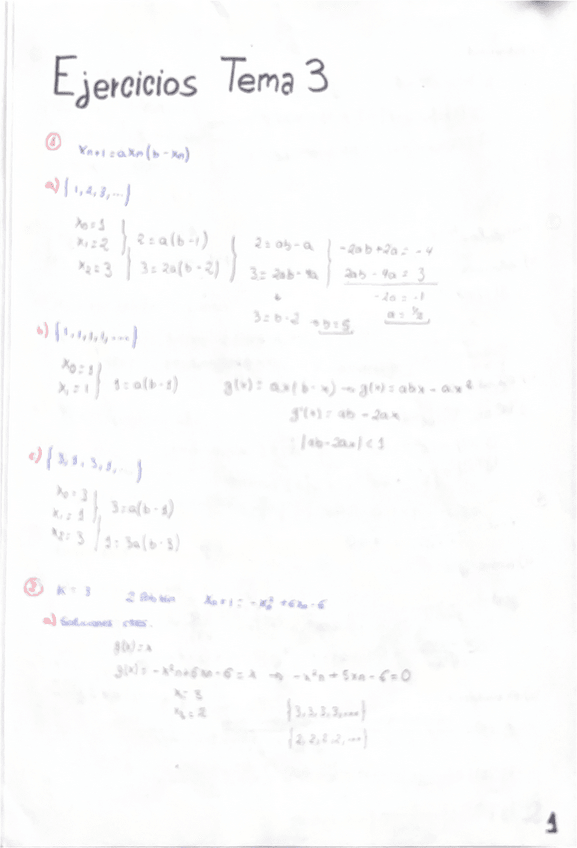 Ejercicios Tema 3
① xn+1 = axn(b-xn)
a) {1,2,3,...}
x0 = 1
x1 = 2
x2 = 3
2 = a(b-1)
3 = 2a(b-2)
2 = ab - a
3 = 2ab - 4a
3 = b-2 → b = 5
-2ab + 2a = -4
2ab - 4a = 3
-2a = -1
a = 1/2
b) {1,1,1,1,...}
x0 = 1
x1 = 1
1 = a(b-1)
g(x) = ax(b-x) → g(x) = abx - ax²
g'(x) = ab - 2ax
|ab-2ax| < 1
c) {3,1,3,1,...}
x0 = 3
x1 = 1
x2 = 3
3 = a(b-1)
1 = 3a(b-3)
② K = 3
a) Soluciones
g(x) = x
g(x) = -x²n + 6xn - 6 = x → -x²n + 5xn - 6 = 0
x = 3
x2 = 2
{3,3,3,3,...}
{2,2,2,2,...}
1